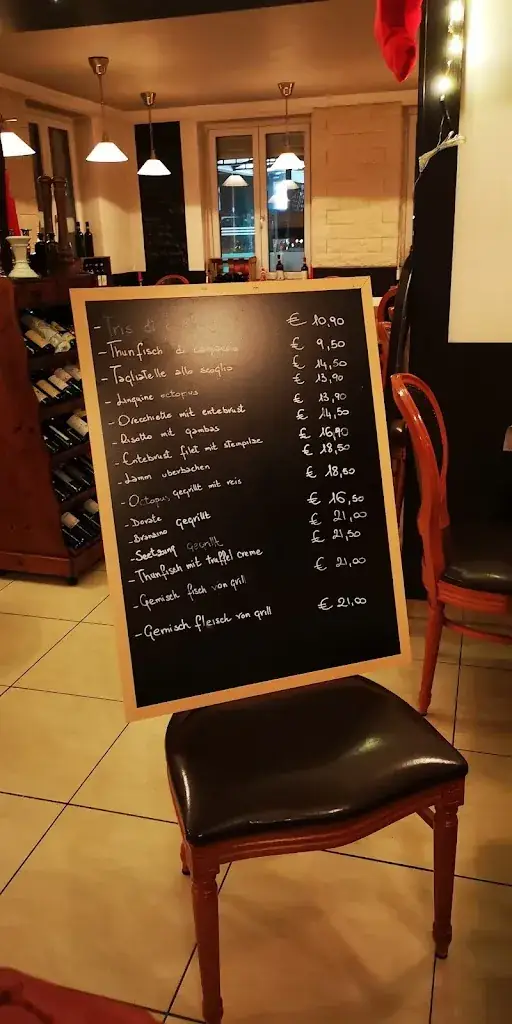 - Tris di € 10,90
- Thunfisch di campagna € 9,50
- Tagliatelle allo scoglio € 14,50
- Linguine octopus € 13,90
- Orecchiette mit entebrust € 13,90
- Risotto mit gambas € 14,50
- Entebrust filet mit steinpilze € 16,90
- Lamm uberbachen € 18,50
- Octopus gegrillt mit reis € 18,50
- Dorate gegrillt € 16,50
- Branzino € 21,00
- Seetzung gegrillt € 21,50
- Thunfisch mit truffel creme
- Gemisch fisch von grill € 21,00
- Gemisch fleisch von grill € 21,00